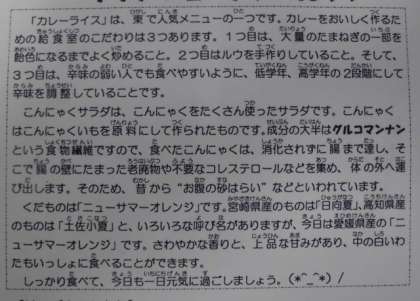 「カレーライス」は、東で人気メニューの一つです。カレーをおいしく作るた
めの給食室のこだわりは3つあります。1つ目は、大量のたまねぎの一部を
飴色になるまでよく炒めること。2つ目はルウを手作りしていること。そして、
3つ目は、辛味の弱い人でも食べやすいように、低学年、高学年の2段階にして
辛味を調整していることです。
こんにゃくサラダは、こんにゃくをたくさん使ったサラダです。こんにゃく
はこんにゃくいもを原料にして作られたものです。成分の大半はグルコマンナン
という食物繊維ですので、食べたこんにゃくは、消化されずに腸まで達し、そ
こで腸の壁にたまった老廃物や不要なコレステロールなどを集め、体の外へ運
び出します。そのため、昔から“お腹の砂はらい”などといわれています。
くだものは「ニューサマーオレンジ」です。宮崎県産のものは「日向夏」、高知県産
のものは「土佐小夏」と、いろいろな呼び名がありますが、今日は愛媛県産の「ニ
ューサマーオレンジ」です。さわやかな香りと、上品な甘みがあり、中の白いわ
たもいっしょに食べることができます。
しっかり食べて、今日も一日元気に過ごしましょう。(*^_^*) /